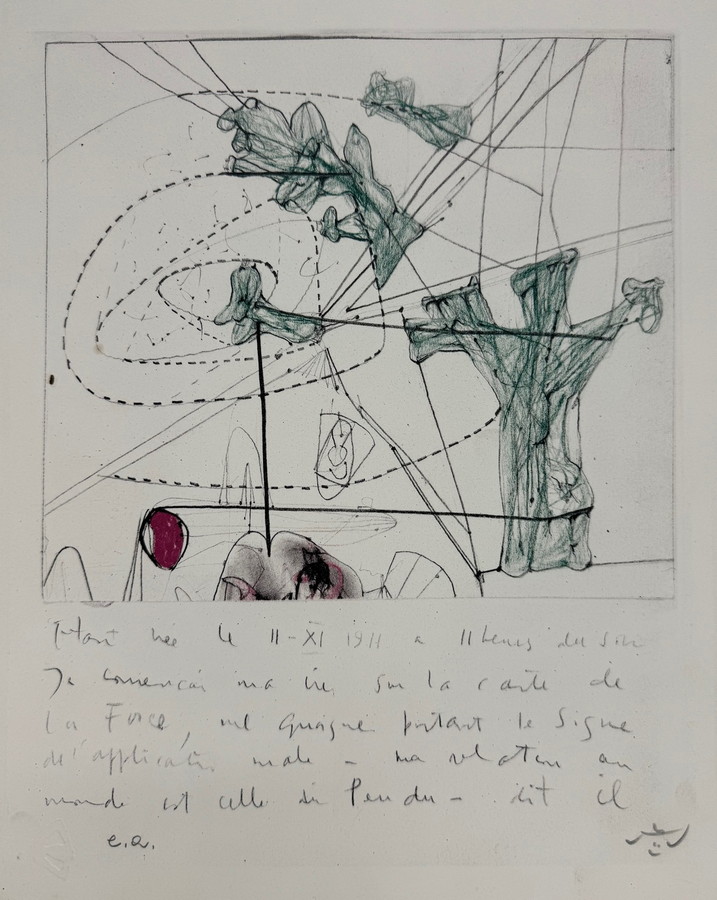 Etant née le 11-XI 1911 a 11 heures du soir
Je començai ma vie sur la carte de
La Force, portant le Signe
male - ma relation au
monde est celle du Pendu - dit il
e.a.